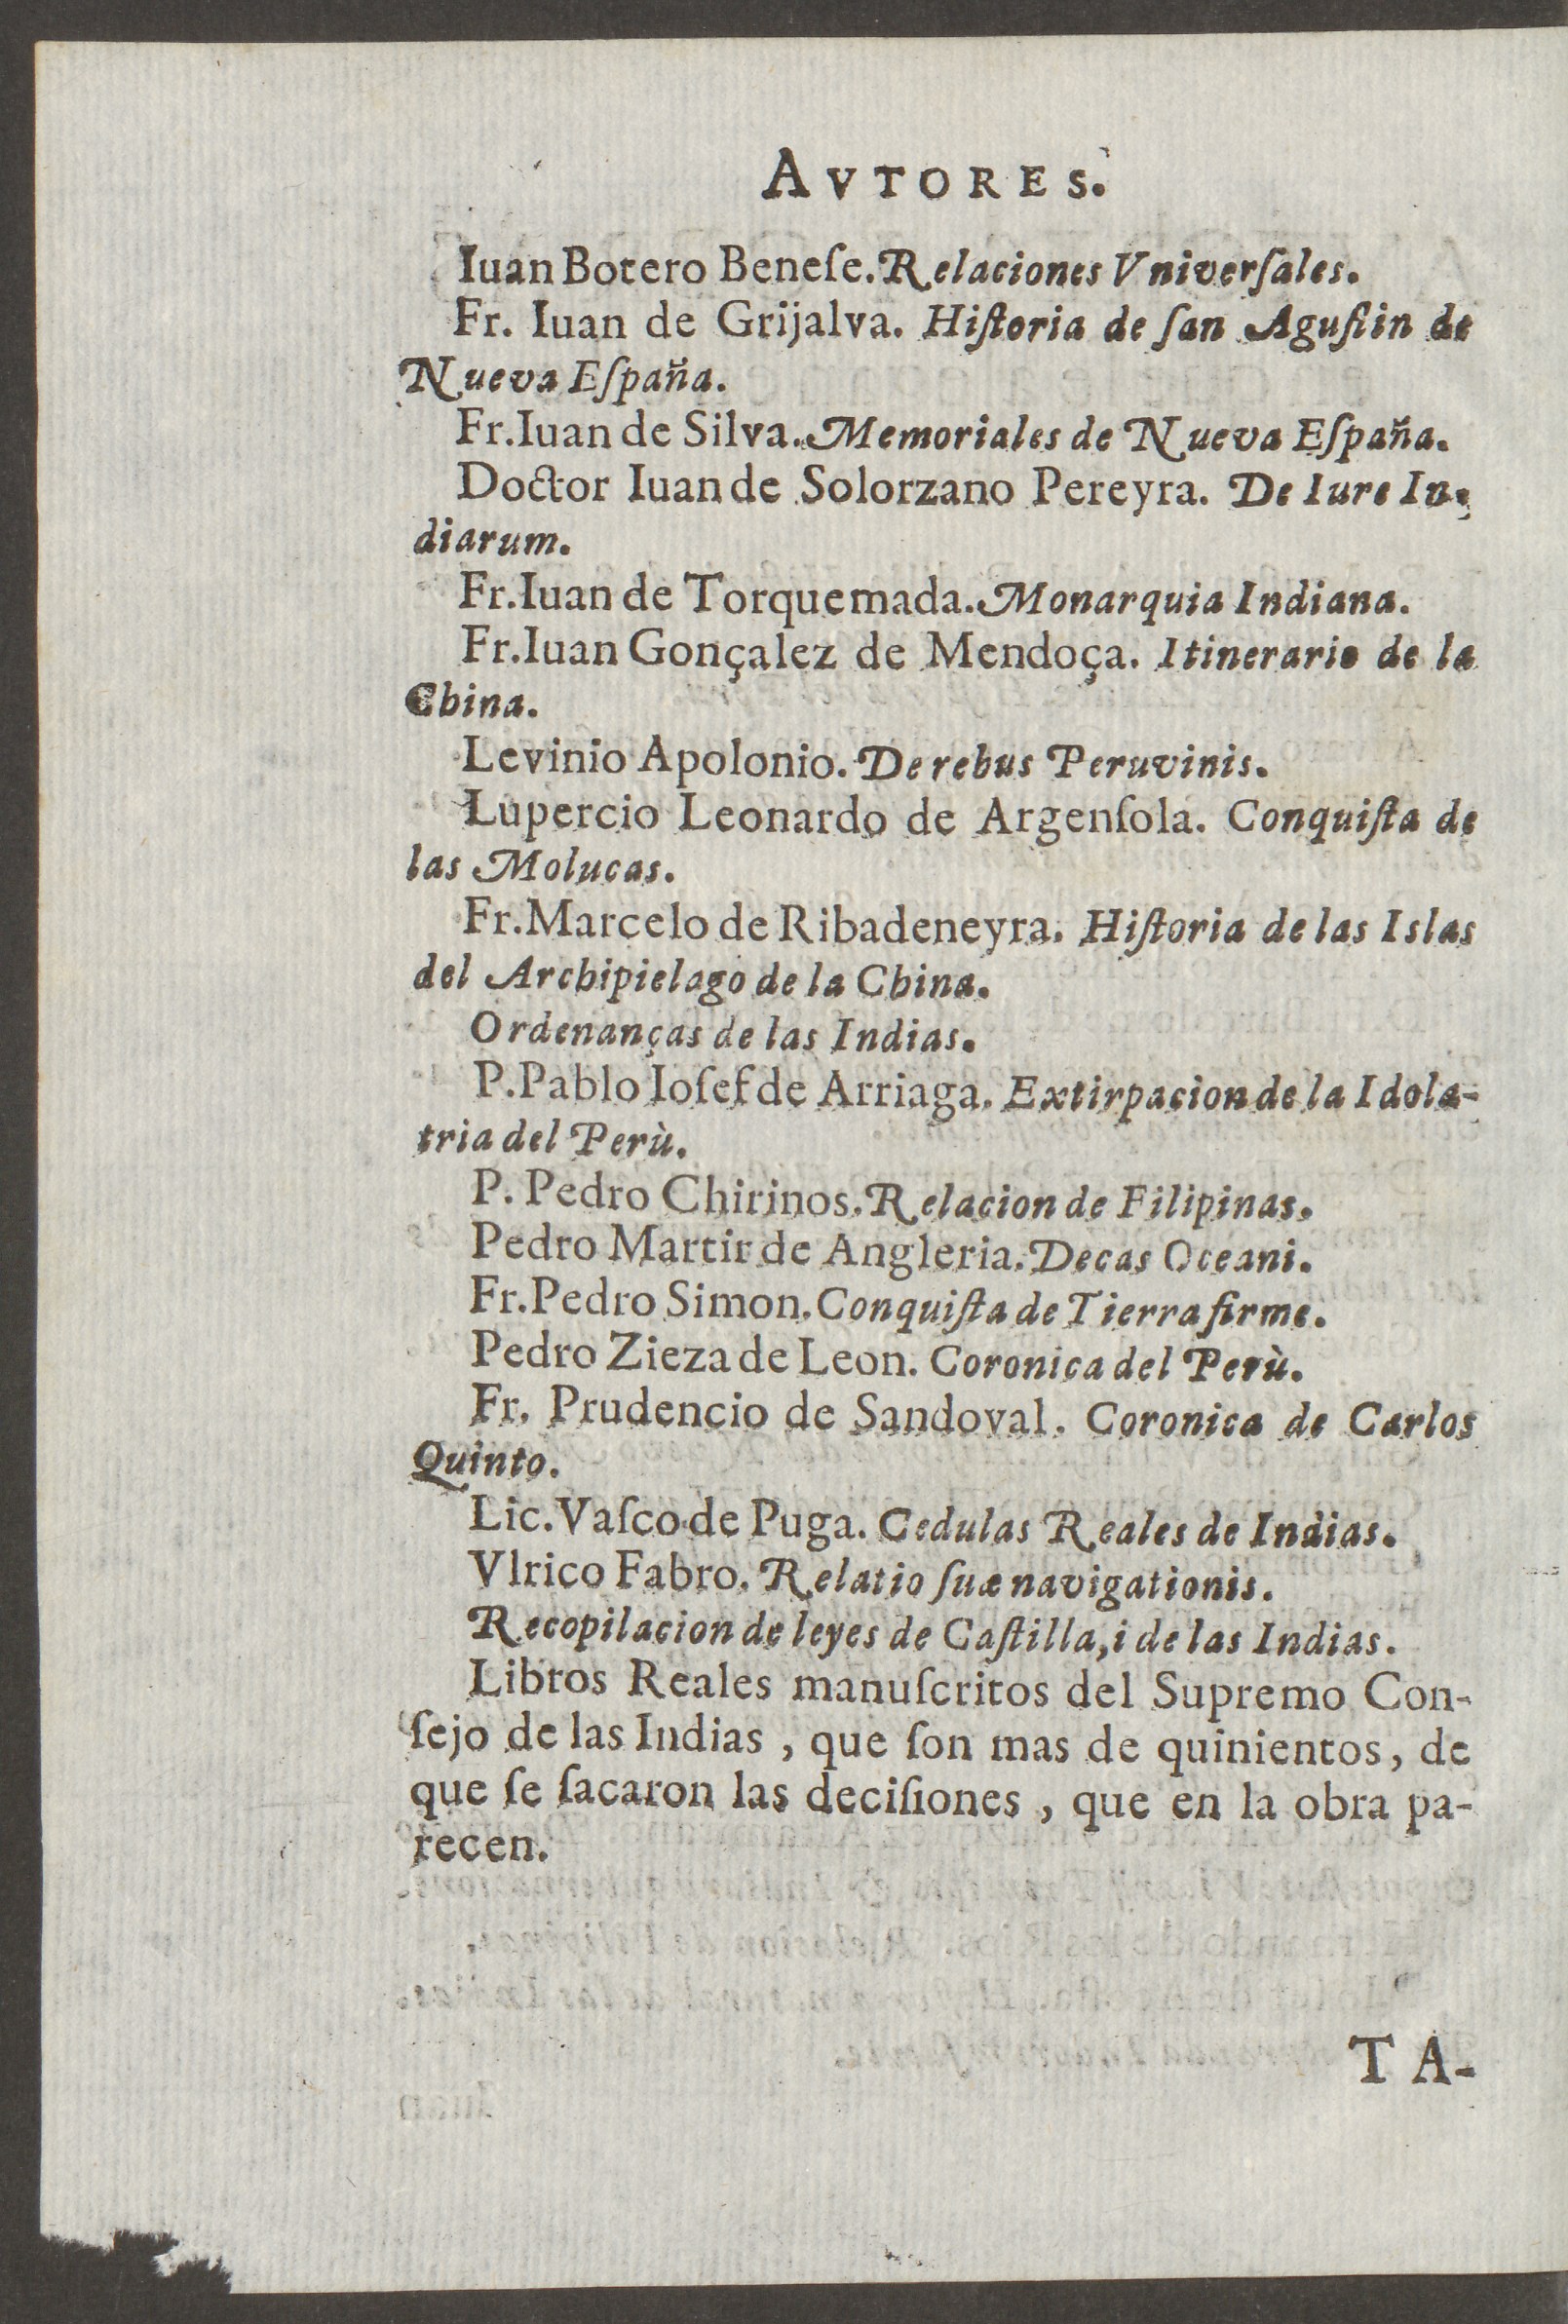 AVTORES.
Iuan Botero Beneſe. Relaciones Vniverſales.
Fr. Iuan de Grijalva. Hiſtoria de ſan Aguſtin de
Nueva Eſpaña.
Fr. Iuan de Silva. Memoriales de Nueva Eſpaña.
Doctor Iuan de Solorzano Pereyra. De Iure In-
diarum.
Fr. Iuan de Torquemada. Monarquia Indiana.
Fr. Iuan Gonçalez de Mendoça. Itinerario de la
China.
Levinio Apolonio. De rebus Peruvinis.
Lupercio Leonardo de Argenſola. Conquiſta de
las Molucas.
Fr. Marcelo de Ribadeneyra. Hiſtoria de las Islas
del Archipielago de la China.
Ordenanças de las Indias.
P. Pablo Ioſef de Arriaga. Extirpacion de la Idola-
tria del Perù.
P. Pedro Chirinos. Relacion de Filipinas.
Pedro Martir de Angleria. Decas Oceani.
Fr. Pedro Simon. Conquiſta de Tierra firme.
Pedro Zieza de Leon. Coronica del Perù.
Fr. Prudencio de Sandoval. Coronica de Carlos
Quinto.
Lic. Vaſco de Puga. Cedulas Reales de Indias.
Vlrico Fabro. Relatio ſuæ navigationis.
Recopilacion de leyes de Caſtilla, i de las Indias.
Libros Reales manuſcritos del Supremo Con-
ſejo de las Indias, que ſon mas de quinientos, de
que ſe ſacaron las deciſiones, que en la obra pa-
recen.
TA-